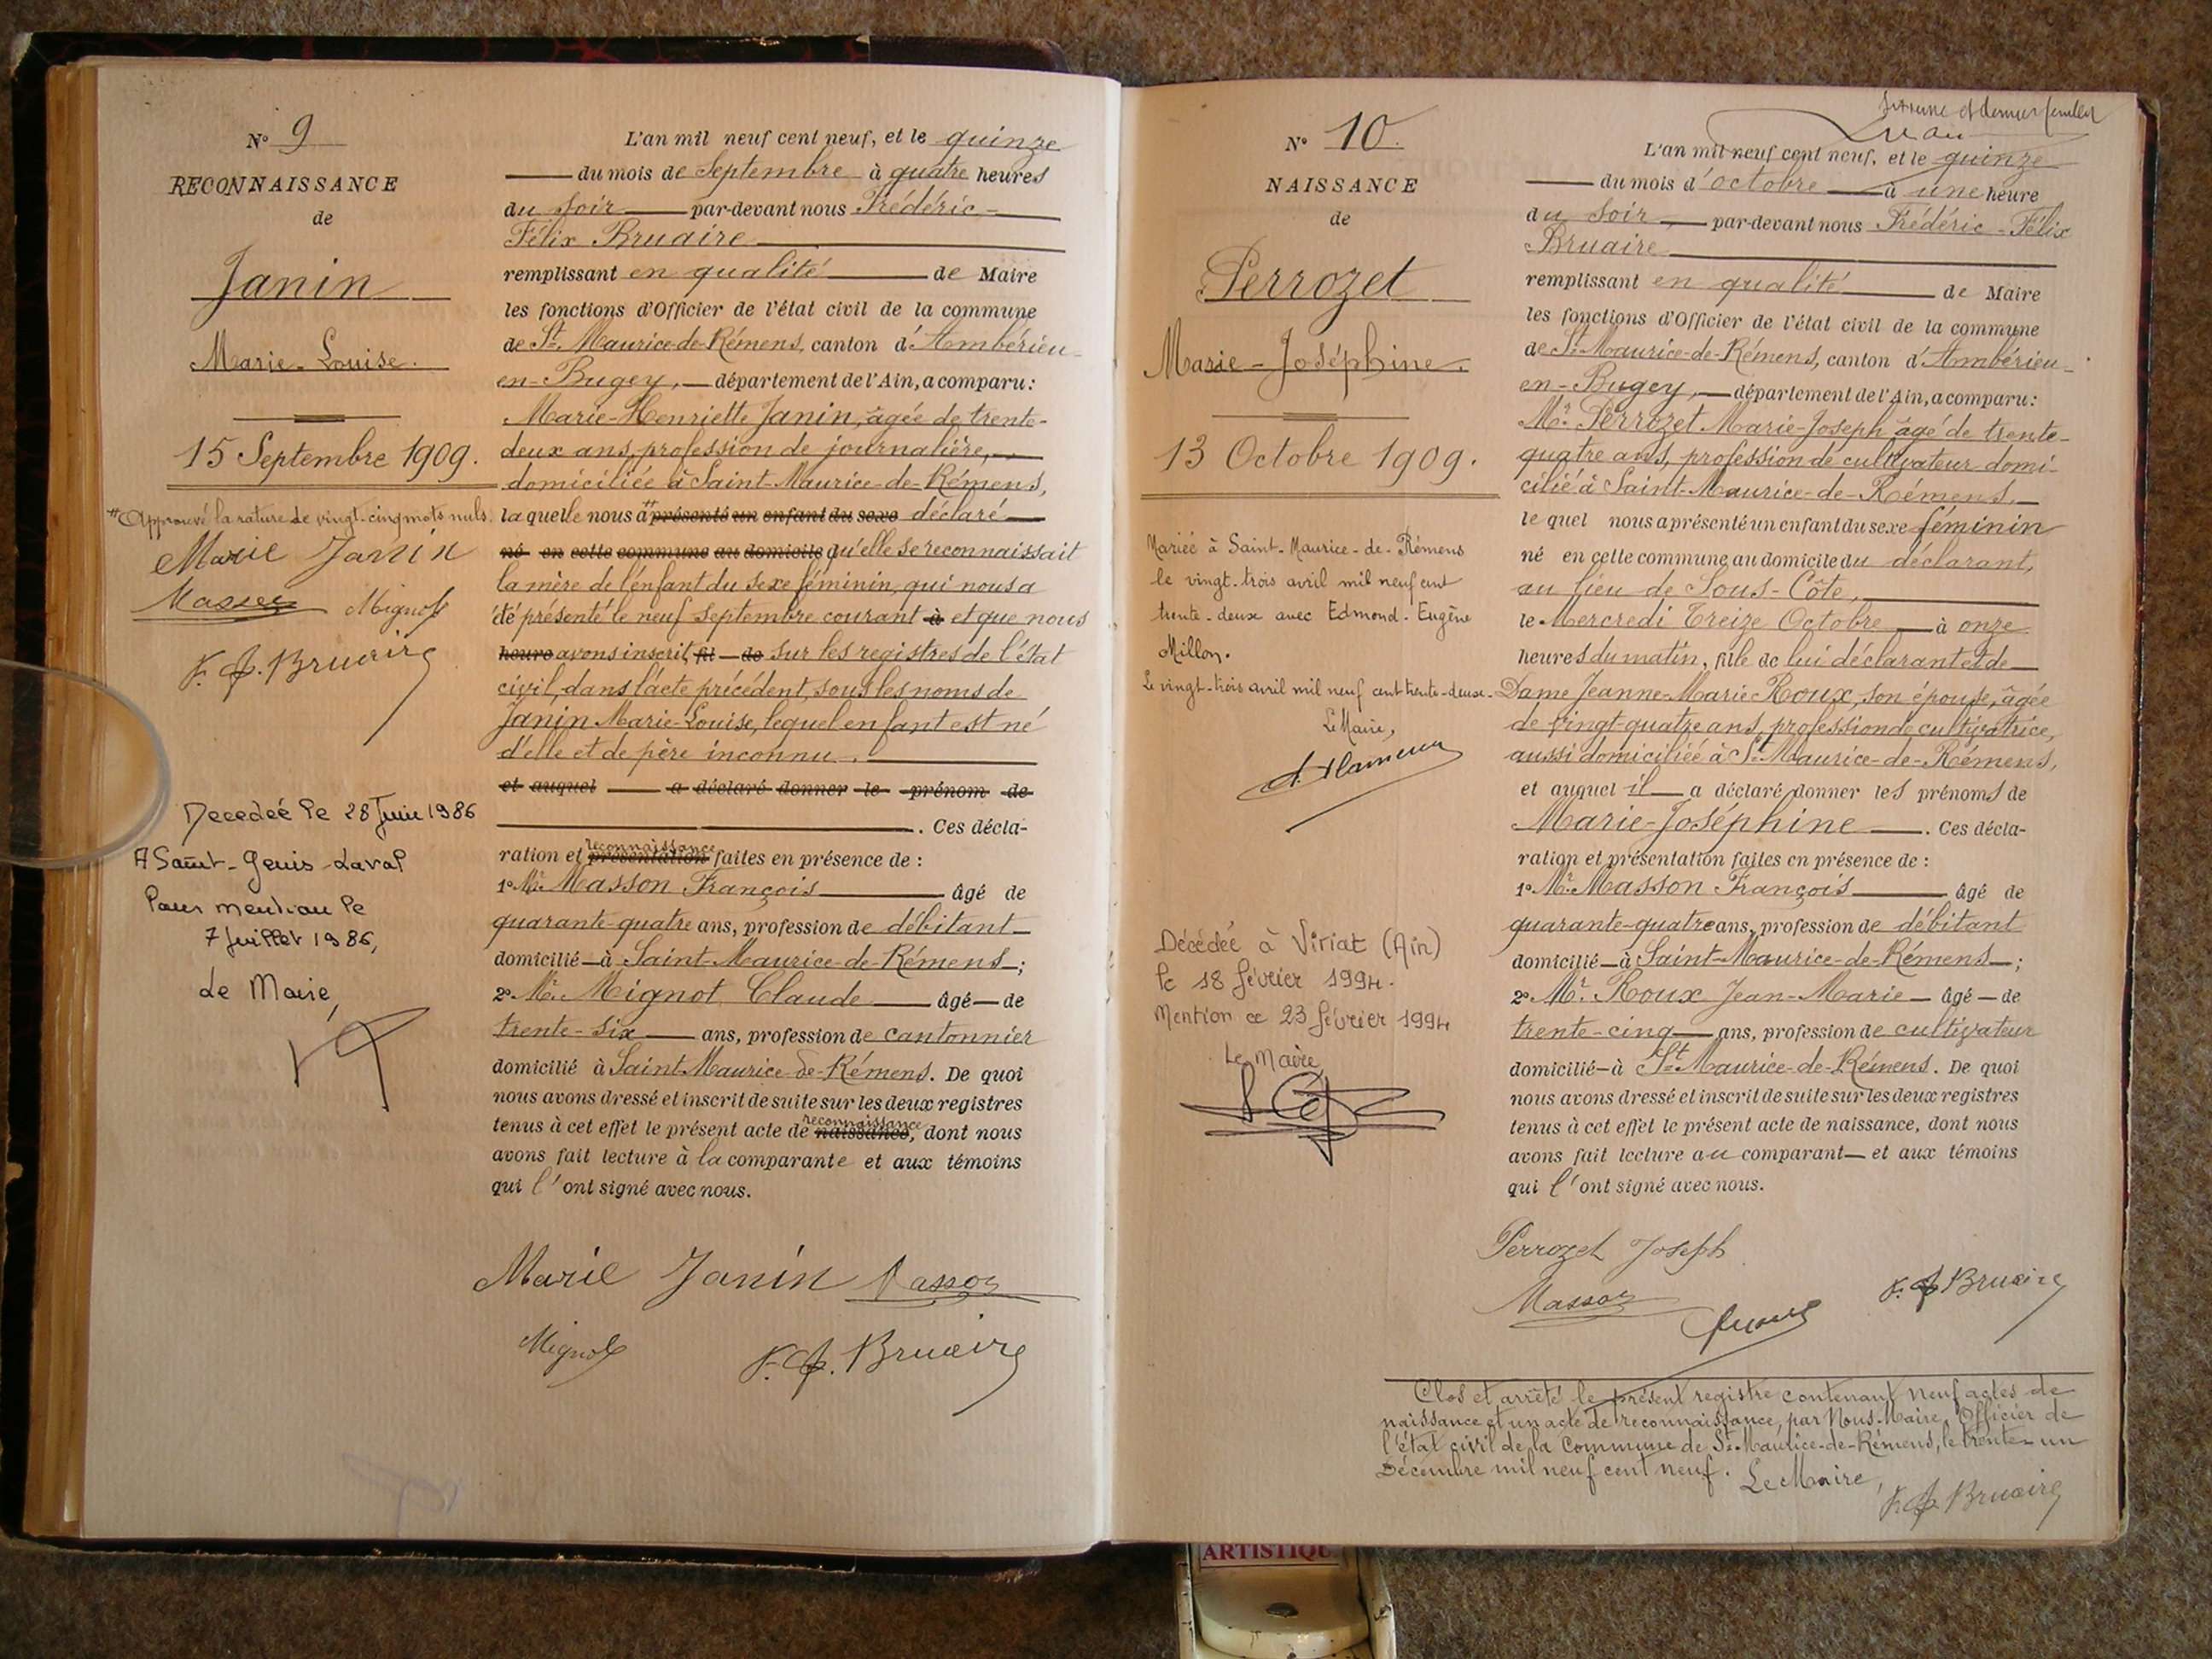 N° 9
RECONNAISSANCE
de
Janin
Marie-Louise.
15 Septembre 1909.
Approuvé la rature de vingt-cinq mots nuls.
Marie Janin
Masson Mignot
F. F. Bruaire
Decedeé le 28 Juin 1986
A Saint-Genis-Laval
Pour mention le
7 Juillet 1986,
Le Maire,
L'an mil neuf cent neuf, et le quinze
du mois de Septembre à quatre heures
du soir par-devant nous Frédéric-
Félix Bruaire
remplissant en qualité de Maire
les fonctions d'Officier de l'état civil de la commune
de St-Maurice-de-Rémens, canton d'Ambérieu-
en-Bugey, département de l'Ain, a comparu :
Marie-Henriette Janin, âgée de trente-
deux ans, profession de journalière,
domiciliée à Saint-Maurice-de-Rémens,
laquelle nous a présenté un enfant du sexe déclaré
né en cette commune au domicile qu'elle se reconnaissait
la mère de l'enfant du sexe féminin, qui nous a
été présenté le neuf Septembre courant à et que nous
heure avons inscrit, fil de sur les registres de l'état
civil, dans l'acte précédent, sous les noms de
Janin Marie-Louise, lequel enfant est né
d'elle et de père inconnu.
et auquel a déclaré donner le prénom de
. Ces décla-
reconnaissance
ration et présentation faites en présence de :
1° Mr. Masson François âgé de
quarante-quatre ans, profession de débitant
domicilié à Saint-Maurice-de-Rémens ;
2° Mr. Mignot Claude âgé de
trente-six ans, profession de cantonnier
domicilié à Saint-Maurice-de-Rémens. De quoi
nous avons dressé et inscrit de suite sur les deux registres
reconnaissance
tenus à cet effet le présent acte de naissance, dont nous
avons fait lecture à la comparante et aux témoins
qui l'ont signé avec nous.
Marie Janin Masson
Mignot F. F. Bruaire
N° 10.
NAISSANCE
de
Perrozet
Marie-Joséphine.
13 Octobre 1909.
Mariée à Saint-Maurice-de-Rémens
le vingt-trois avril mil neuf cent
trente-deux avec Edmond-Eugène
Millon.
Le vingt-trois avril mil neuf cent trente-deux.
Le Maire,
Décédée à Viriat (Ain)
le 18 février 1994.
Mention ce 23 février 1994
Le Maire,
et dernier feuillet
L'an mil neuf cent neuf, et le quinze
du mois d'octobre à une heure
du soir, par-devant nous Frédéric-Félix
Bruaire
remplissant en qualité de Maire
les fonctions d'Officier de l'état civil de la commune
de St-Maurice-de-Rémens, canton d'Ambérieu-
en-Bugey, département de l'Ain, a comparu :
Mr. Perrozet Marie-Joseph âgé de trente-
quatre ans, profession de cultivateur domi-
cilié à Saint-Maurice-de-Rémens,
lequel nous a présenté un enfant du sexe féminin
né en cette commune au domicile du déclarant,
au lieu de Sous-Côte,
le Mercredi Treize Octobre à onze
heures du matin, fille de lui déclarant et de
Dame Jeanne-Marie Roux, son épouse, âgée
de vingt-quatre ans, profession de cultivatrice,
aussi domiciliée à St-Maurice-de-Rémens,
et auquel il a déclaré donner les prénoms de
Marie-Joséphine. Ces décla-
ration et présentation faites en présence de :
1° Mr. Masson François âgé de
quarante-quatre ans, profession de débitant
domicilié à Saint-Maurice-de-Rémens ;
2° Mr. Roux Jean-Marie âgé de
trente-cinq ans, profession de cultivateur
domicilié à St-Maurice-de-Rémens. De quoi
nous avons dressé et inscrit de suite sur les deux registres
tenus à cet effet le présent acte de naissance, dont nous
avons fait lecture au comparant et aux témoins
qui l'ont signé avec nous.
Perrozet Joseph
Masson F. F. Bruaire
Clos et arrêté le présent registre contenant neuf actes de
naissance et un acte de reconnaissance, par Nous, Maire, Officier de
l'état civil de la Commune de St-Maurice-de-Rémens, le trente-un
Décembre mil neuf cent neuf. Le Maire,
F. F. Bruaire
ARTISTIQU